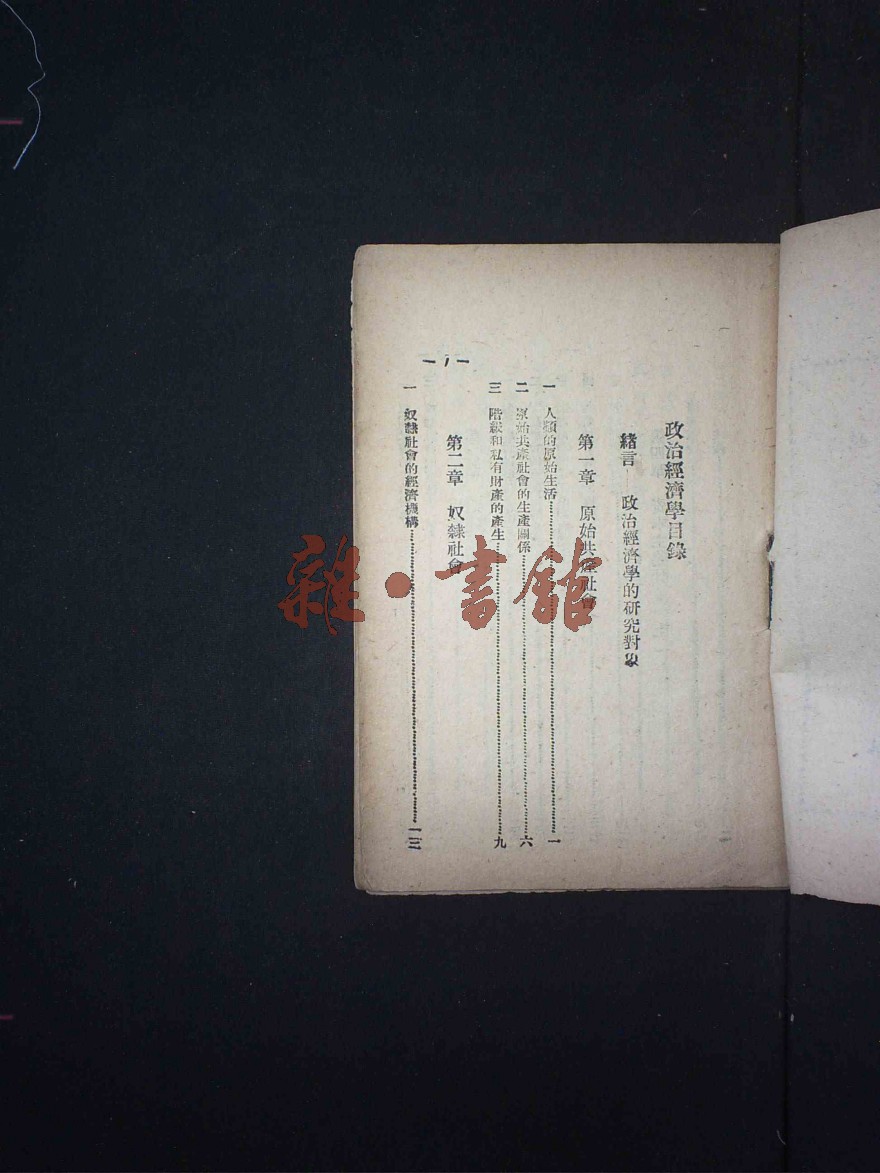 政治經濟學目錄
緒言——政治經濟學的研究對象
第一章 原始共產社會
一 人類的原始生活…………一
二 原始共產社會的生產關係…………六
三 階級和私有財產的產生…………九
第二章 奴隸社會
一 奴隸社會的經濟機構…………一三
— 1 —
雜·書館